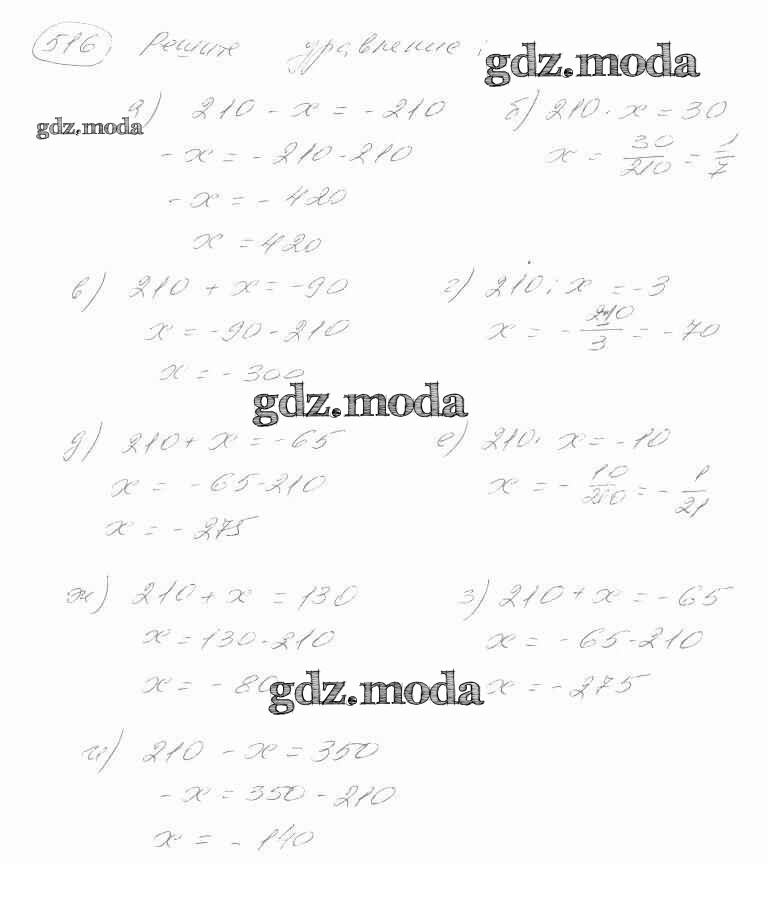 516, Решите уравнение:
gdz.moda
а) 210 - x = -210
б) 210 · x = 30
gdz.moda
-x = -210-210
x = 30/210 = 1/7
-x = -420
x = 420
в) 210 + x = -90
г) 210 : x = -3
x = -90-210
x = -210/3 = -70
x = -300
gdz.moda
д) 210 + x = -65
е) 210 · x = -10
x = -65-210
x = -10/210 = -1/21
x = -275
ж) 210 + x = 130
з) 210 + x = -65
x = 130-210
x = -65-210
x = -80
gdz.moda
x = -275
и) 210 - x = 350
-x = 350 - 210
x = -140